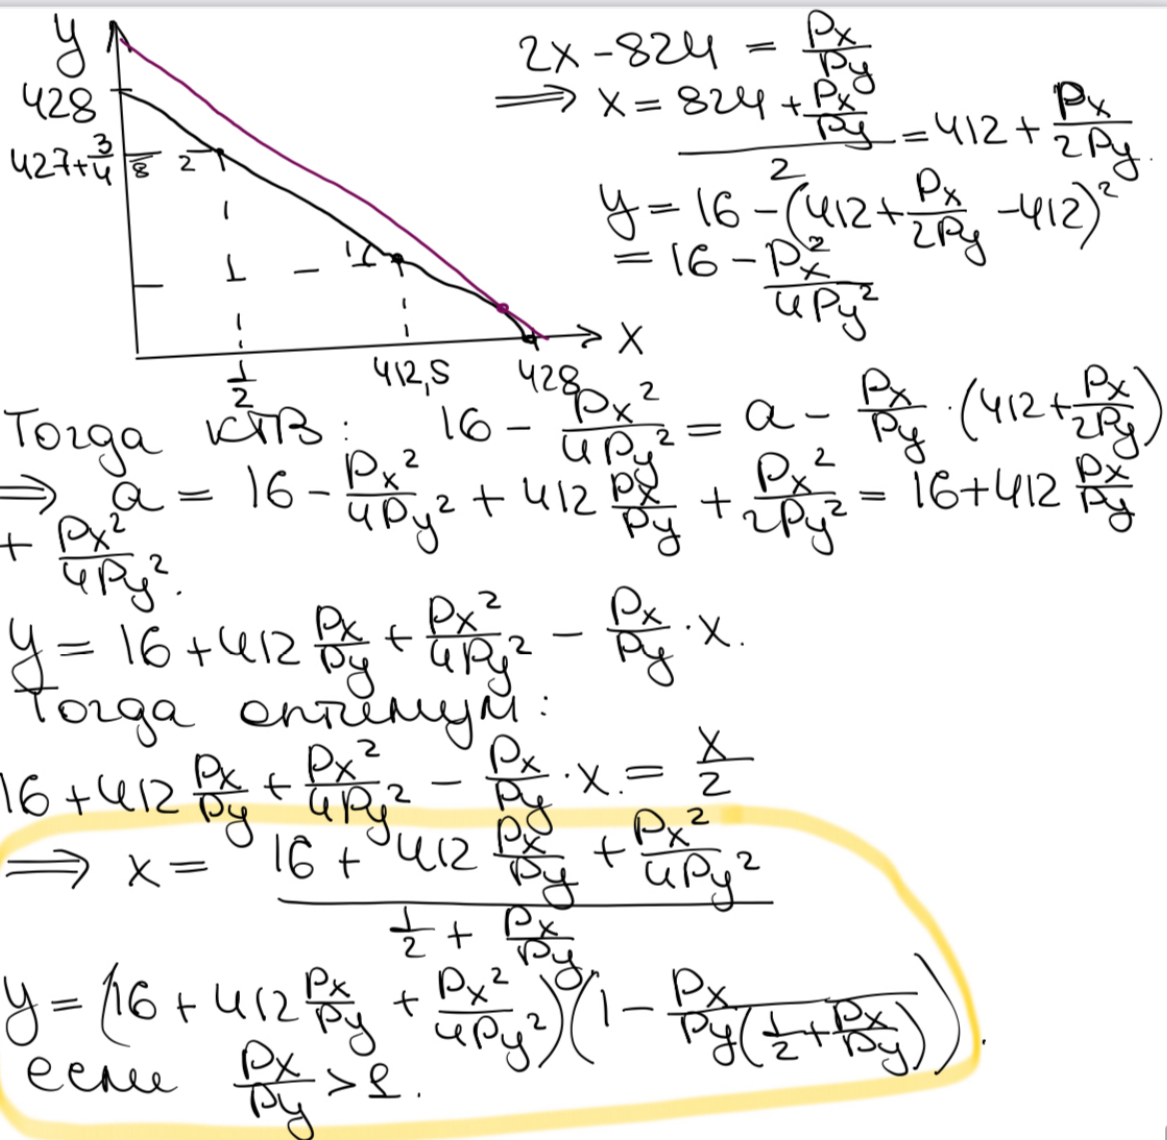 y
428
427+3/4
8
2
1
1
1/2
412,5
428
x
2x - 824 = Px/Py
⟹ x = (824 + Px/Py)/2 = 412 + Px/2Py.
y = 16 - (412 + Px/2Py - 412)²
= 16 - Px²/4Py²
Тогда КПВ: 16 - Px²/4Py² = a - Px/Py · (412 + Px/2Py)
⟹ a = 16 - Px²/4Py² + 412 Px/Py + Px²/2Py² = 16 + 412 Px/Py
+ Px²/4Py².
y = 16 + 412 Px/Py + Px²/4Py² - Px/Py · x.
Тогда оптимум:
16 + 412 Px/Py + Px²/4Py² - Px/Py · x = x/2
⟹ x = (16 + 412 Px/Py + Px²/4Py²)/(1/2 + Px/Py)
y = (16 + 412 Px/Py + Px²/4Py²)(1 - Px/(Py(1/2 + Px/Py))).
если Px/Py > 1.